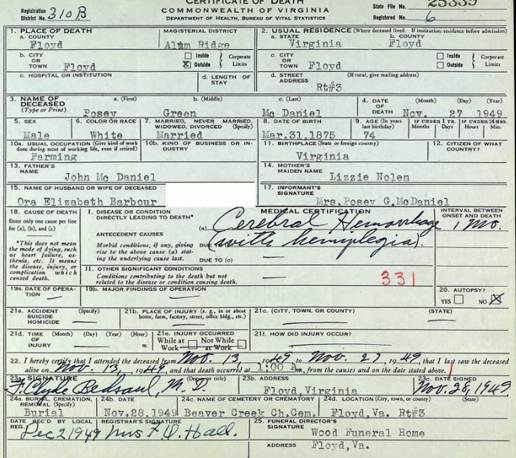 CERTIFICATE OF DEATH
COMMONWEALTH OF VIRGINIA
DEPARTMENT OF HEALTH, BUREAU OF VITAL STATISTICS
Registration District No. 310B
State File No.
Registered No. 6
1. PLACE OF DEATH
a. COUNTY Floyd
MAGISTERIAL DISTRICT Alum Ridge
2. USUAL RESIDENCE (Where deceased lived. If institution: residence before admission)
a. STATE Virginia
b. COUNTY Floyd
b. CITY OR TOWN Floyd
Inside Outside Corporate Limits
c. CITY OR TOWN Floyd
Inside Outside Corporate Limits
c. HOSPITAL OR INSTITUTION
d. LENGTH OF STAY
d. STREET ADDRESS (If rural, give mailing address)
Rt#3
3. NAME OF DECEASED (Type or Print)
a. (First) Posey
b. (Middle) Green
c. (Last) Mc Daniel
4. DATE OF DEATH (Month) (Day) (Year)
Nov. 27 1949
5. SEX Male
6. COLOR OR RACE White
7. MARRIED, NEVER MARRIED, WIDOWED, DIVORCED (Specify) Married
8. DATE OF BIRTH Mar.31,1875
9. AGE (In years last birthday) 74
10a. USUAL OCCUPATION (Give kind of work done during most of working life, even if retired) Farming
10b. KIND OF BUSINESS OR INDUSTRY
11. BIRTHPLACE (State or foreign country) Virginia
12. CITIZEN OF WHAT COUNTRY?
13. FATHER'S NAME John Mc Daniel
14. MOTHER'S MAIDEN NAME Lizzie Nolen
15. NAME OF HUSBAND OR WIFE OF DECEASED Ora Elizabeth Barbour
17. INFORMANT'S SIGNATURE Mrs.Posey G.McDaniel
18. CAUSE OF DEATH
Enter only one cause per line for (a), (b), and (c)
*This does not mean the mode of dying, such as heart failure, asthenia, etc. It means the disease, injury, or complication which caused death.
MEDICAL CERTIFICATION
INTERVAL BETWEEN ONSET AND DEATH
I. DISEASE OR CONDITION DIRECTLY LEADING TO DEATH*
(a) Cerebral Hemorrhage 1 Mo.
(with hemiplegia).
ANTECEDENT CAUSES
Morbid conditions, if any, giving rise to the above cause (a) stating the underlying cause last.
DUE TO (c)
II. OTHER SIGNIFICANT CONDITIONS
Conditions contributing to the death but not related to the disease or condition causing death.
331
19a. DATE OF OPERATION
19b. MAJOR FINDINGS OF OPERATION
20. AUTOPSY?
YES NO
21a. ACCIDENT SUICIDE HOMICIDE
21b. PLACE OF INJURY (e.g., in or about home, farm, factory, street, office bldg., etc.)
21c. (CITY, TOWN, OR COUNTY) (State)
21d. TIME OF INJURY (Month) (Day) (Year) (Hour)
21e. INJURY OCCURRED
While at Work Not While at Work
21f. HOW DID INJURY OCCUR?
22. I hereby certify that I attended the deceased from Nov. 13, 1949 to Nov. 27, 1949, that I last saw the deceased
alive on Nov. 13, 1949, and that death occurred at 1:00 A m., from the causes and on the date stated above.
23a. SIGNATURE
M.D.
23b. ADDRESS Floyd,Virginia
23c. DATE SIGNED Nov.28,1949
24a. BURIAL, CREMATION, REMOVAL (Specify) Burial
Nov.28,1949
24c. NAME OF CEMETERY OR CREMATORY Beaver Creek Ch.Cem.
Floyd,Va. Rt#3
DATE REC'D BY LOCAL REG. Dec 2 1949
REGISTRAR'S SIGNATURE
25. FUNERAL DIRECTOR'S SIGNATURE Wood Funeral Home
ADDRESS Floyd,Va.